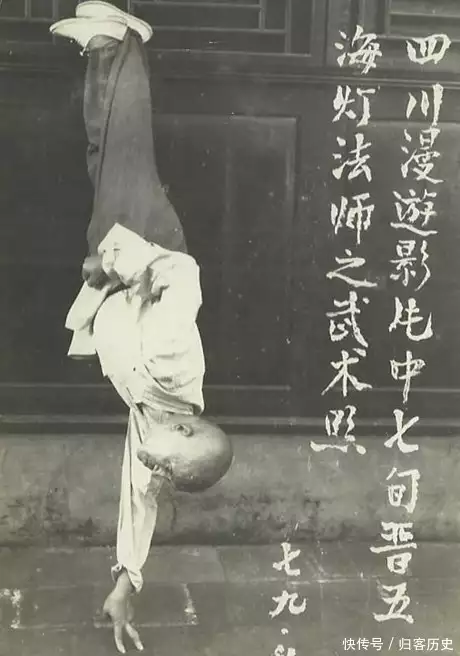 四川漫遊影片中七旬晋五
海灯法师之武术照
七九·
快传号 / 归客历史